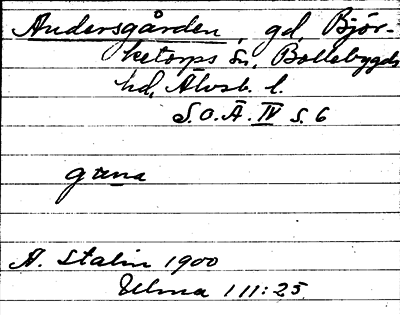 Andersgården, gd, Björ-
ketorps sn, Bollebygds
hd, Älvsb. l.
S.O.Ä. IV s. 6
A. Stalin 1900
111:25